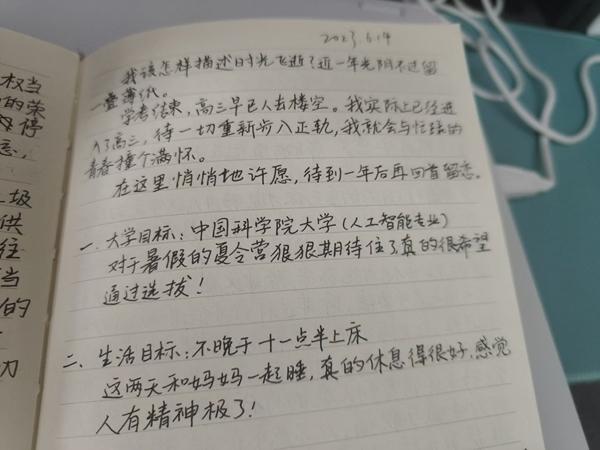 2023.6.14
我该怎样描述时光飞逝？近一年光阴不过留
一叠薄纸。
学考结束，高三早已人去楼空。我实际上已经进
入了高三，待一切重新步入正轨，我就会与忙碌的
青春撞个满怀。
在这里悄悄地许愿，待到一年后再回首留恋。
一、大学目标：中国科学院大学（人工智能专业）
对于暑假的夏令营狠狠期待住了真的很希望
通过选拔！
二、生活目标：不晚于十一点半上床
这两天和妈妈一起睡，真的休息得很好，感觉
人有精神极了！
权当
的荣
停
圾
供
往
当
的
切